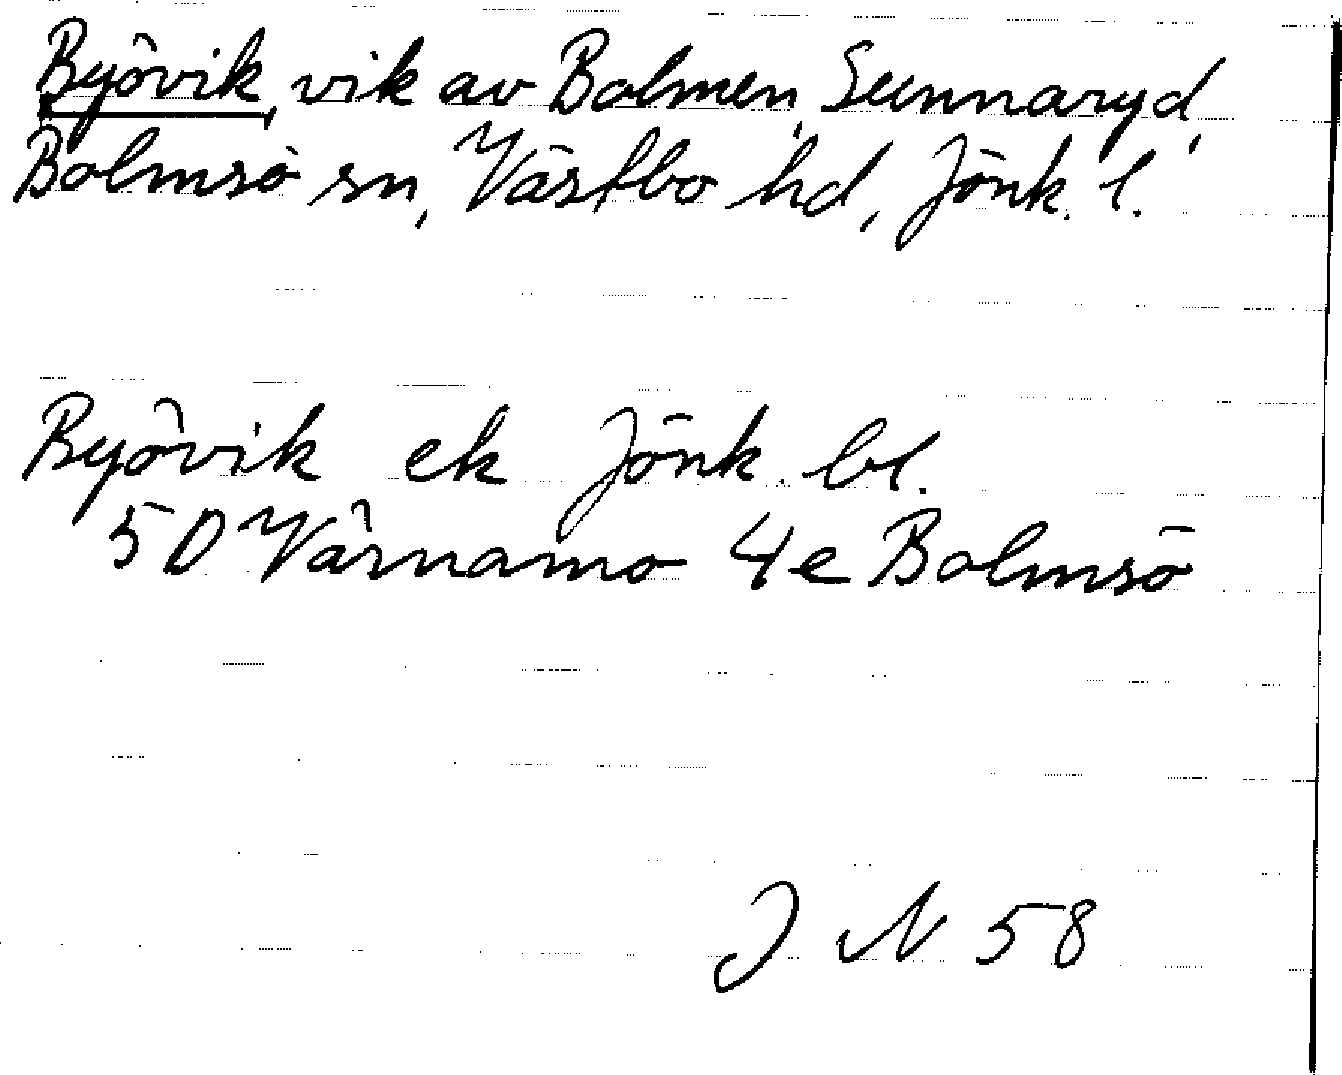 Byövik, vik av Bolmen, Sunnaryd,
Bolmsö sn, Västbo hd, Jönk. l.
Byövik ek Jönk. bl.
5 D Värnamo 4 e Bolmsö
J N 58